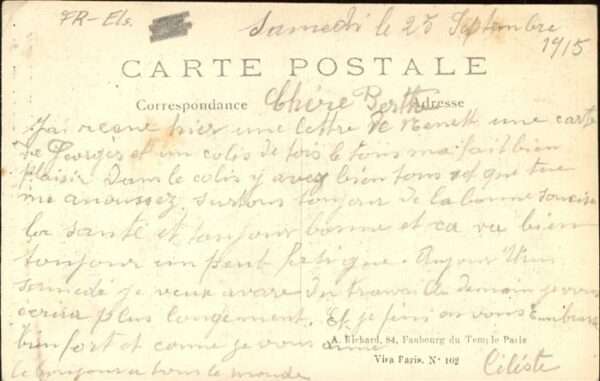 FR-Els.
Samedi le 25 Septembre
1915
CARTE POSTALE
Correspondance
Adresse
Chère Berthe
J'ai reçue hier une lettre de une carte
de Georges et un colis de tois le tous ma fait bien
plaisir dans le colis y avez bien tous ce que tue
me anoussez, surtous toujour de la bonne
la santé et toujour bonne et ca va bien
toujour un peut fatigue. Aujour
samedi je veux avare du travail demain je vous
ecrirai plus longement. Et je fini en vous embrasse
bien fort et comme je vous aime
le bonjour a tous le monde
Céléste
A. Richard, 84, Faubourg du Temple Paris
Visa Paris. N° 102